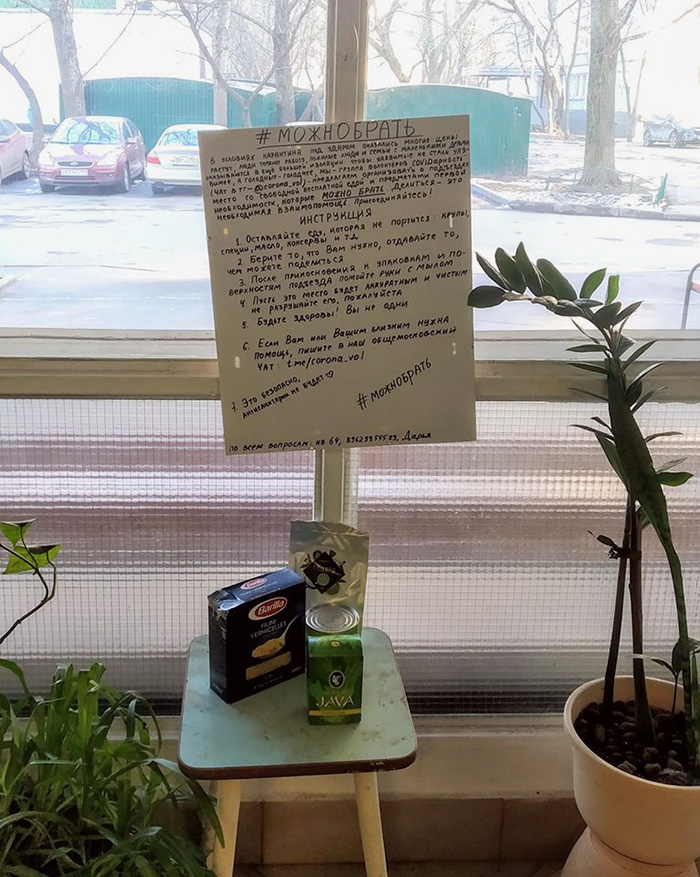 #МОЖНОБРАТЬ
В УСЛОВИЯХ КАРАНТИНА ПОД УДАРОМ ОКАЗАЛИСЬ МНОГИЕ: ЦЕНЫ
РАСТУТ, ЛЮДИ ТЕРЯЮТ РАБОТУ, ПОЖИЛЫЕ ЛЮДИ И СЕМЬИ С МАЛЕНЬКИМИ ДЕТЬМИ
ОКАЗЫВАЮТСЯ В ЕЩЕ БОЛЬШЕЙ ИЗОЛЯЦИИ. ЧТОБЫ УЯЗВИМЫЕ НЕ СТАЛИ УЯЗ-
ВИМЕЕ, А ГОЛОДНЫЕ ГОЛОДНЕЕ, МЫ - ГРУППА ВОЛОНТЕРОВ COVIDАРНОСТЬ
(ЧАТ В ТГ- @corona_vol) - ПРЕДЛАГАЕМ ОРГАНИЗОВАТЬ В ПОДЪЕЗДАХ
МЕСТО СО СВОБОДНОЙ БЕСПЛАТНОЙ ЕДОЙ И ПРЕДМЕТАМИ ПЕРВОЙ
НЕОБХОДИМОСТИ, КОТОРЫЕ МОЖНО БРАТЬ. ДЕЛИТЬСЯ - ЭТО
НЕОБХОДИМАЯ ВЗАИМОПОМОЩЬ. ПРИСОЕДИНЯЙТЕСЬ!
ИНСТРУКЦИЯ
1. ОСТАВЛЯЙТЕ ЕДУ, КОТОРАЯ НЕ ПОРТИТСЯ: КРУПЫ,
СПЕЦИИ, МАСЛО, КОНСЕРВЫ И Т.Д.
2. БЕРИТЕ ТО, ЧТО ВАМ НУЖНО, ОТДАВАЙТЕ ТО,
ЧЕМ МОЖЕТЕ ПОДЕЛИТЬСЯ
3. ПОСЛЕ ПРИКОСНОВЕНИЯ К УПАКОВКАМ И ПО-
ВЕРХНОСТЯМ ПОДЪЕЗДА ПОМОЙТЕ РУКИ С МЫЛОМ
4. ПУСТЬ ЭТО МЕСТО БУДЕТ АККУРАТНЫМ И ЧИСТЫМ
НЕ РАЗРУШАЙТЕ ЕГО, ПОЖАЛУЙСТА
5. БУДЬТЕ ЗДОРОВЫ! ВЫ НЕ ОДНИ
6. ЕСЛИ ВАМ ИЛИ ВАШИМ БЛИЗКИМ НУЖНА
ПОМОЩЬ, ПИШИТЕ В НАШ ОБЩЕМОСКОВСКИЙ
ЧАТ: t.me/corona_vol
7. ЭТО БЕЗОПАСНО,
АНТИСАНИТАРИИ НЕ БУДЕТ ♡
#МОЖНОБРАТЬ
ПО ВСЕМ ВОПРОСАМ КВ 64, ДАРЬЯ
Barilla
FILINI
VERMICELLES
JAVA